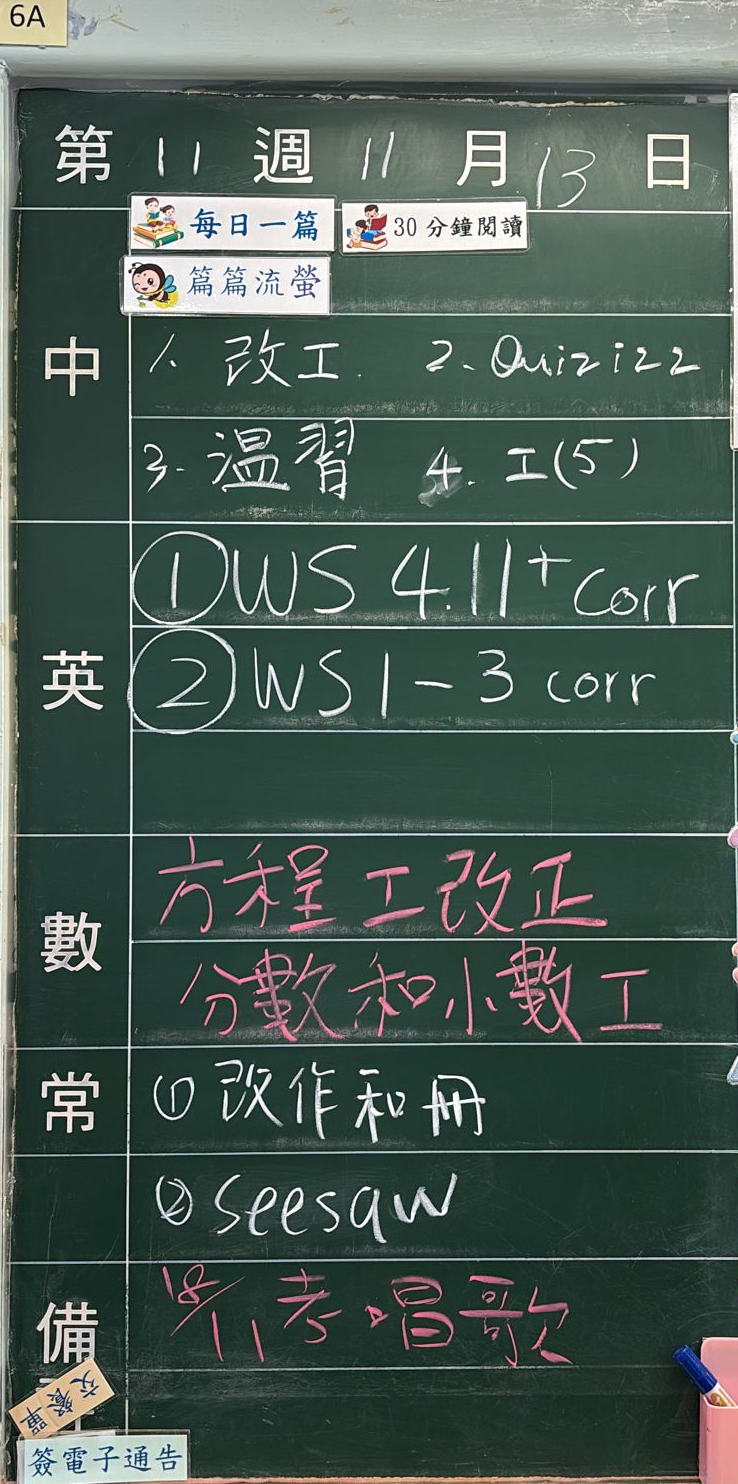 6A
第 11 週 11 月 13 日
每日一篇 30分鐘閱讀
篇篇流螢
中 1. 改工. 2. Quizizz
3. 温習 4. 工(5)
英 ① WS 4.11 + corr
② WS 1-3 corr
數 方程工改正
分數和小數工
常 ① 改作和冊
② seesaw
備 18/11 考唱歌
交餐單
簽電子通告